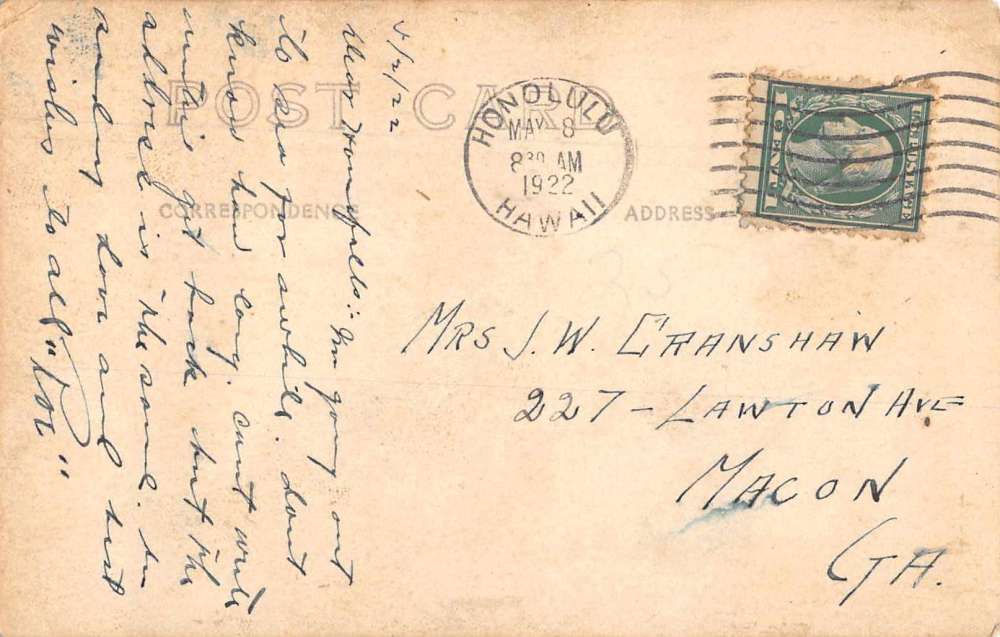 POST CARD
CORRESPONDENCE
ADDRESS
HONOLULU
MAY 8
8 30 AM
1922
HAWAII
U.S. POSTAGE
1 CENT 1
MRS J. W. CRANSHAW
227 - LAWTON AVE
MACON
GA.
5/2/22
Dear Homefolks: Im going out
to sea for awhile. dont
know how long. cant write
until i get back but the
address is the same. Im
sending love and best
wishes to all "